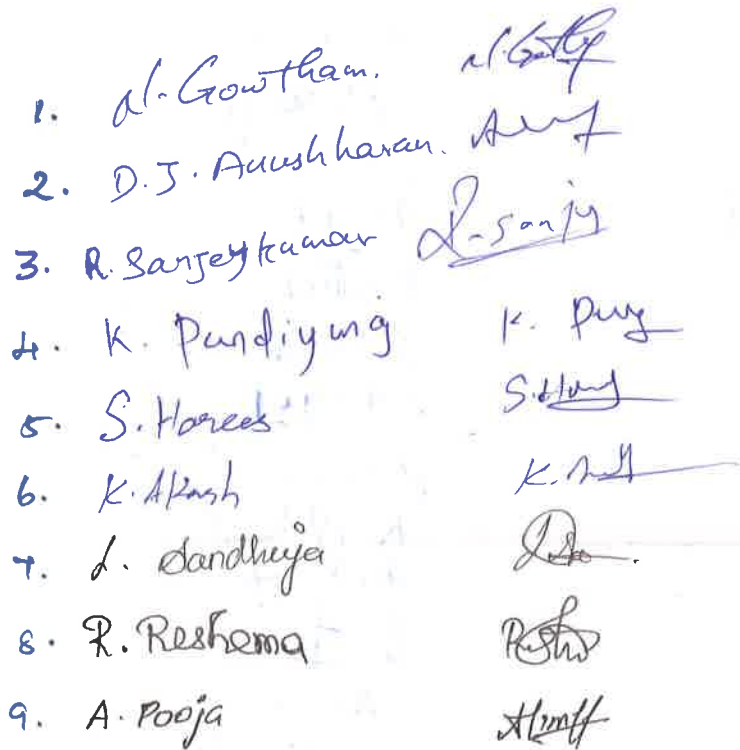 1. N. Gowtham.
2. D.J. Anushharan.
3. R. Sanjeykumar R-sanjy
4. K. Pandiyung K.
5. S. Harees
6. K. Akash K.
7. S. Sandhuja
8. R. Reshema
9. A. Pooja